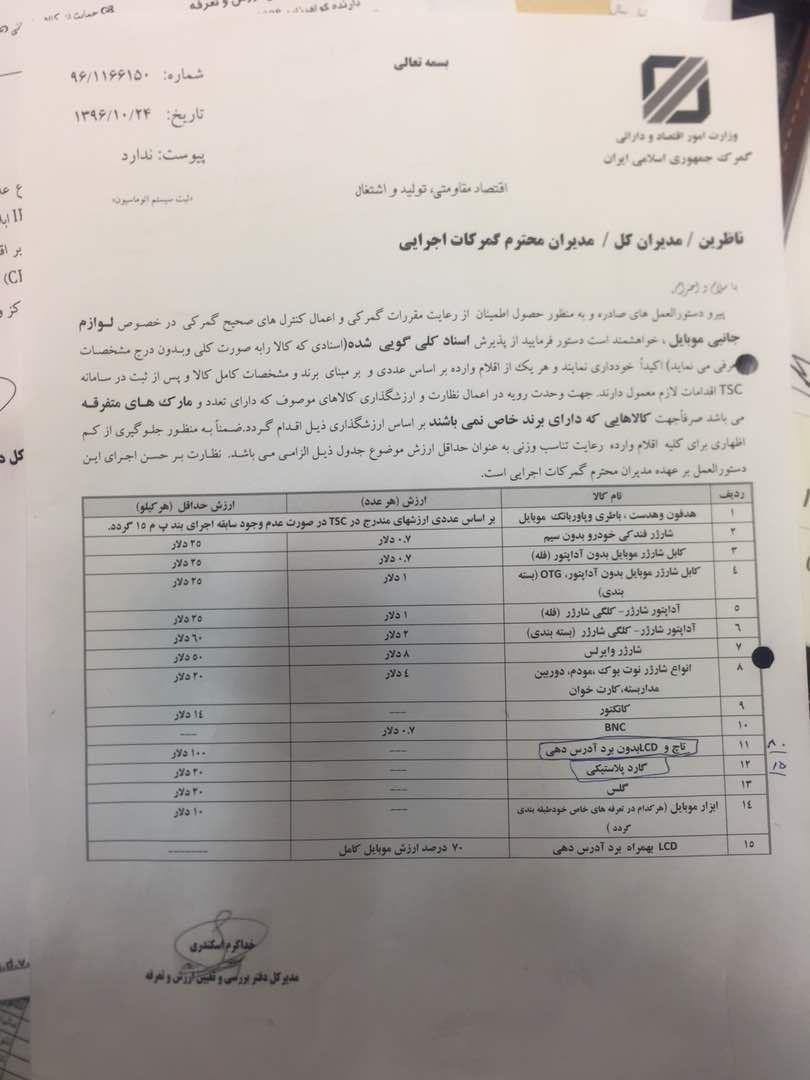 بسمه تعالی
وزارت امور اقتصاد و دارائی
گمرک جمهوری اسلامی ایران
شماره: ۹۶/۱۱۶۶۱۵۰
تاریخ: ۱۳۹۶/۱۰/۲۴
پیوست: ندارد
«ثبت سیستم اتوماسیون»
اقتصاد مقاومتی، تولید و اشتغال
ناظرین / مدیران کل / مدیران محترم گمرکات اجرایی
با سلام و احترام
پیرو دستورالعمل های صادره و به منظور حصول اطمینان از رعایت مقررات گمرکی و اعمال کنترل های صحیح گمرکی در خصوص لوازم
جانبی موبایل ، خواهشمند است دستور فرمایید از پذیرش اسناد کلی گویی شده(اسنادی که کالا رابه صورت کلی وبدون درج مشخصات
معرفی می نماید) اکیداً خودداری نمایند و هر یک از اقلام وارده بر اساس عددی و بر مبنای برند و مشخصات کامل کالا و پس از ثبت در سامانه
TSC اقدامات لازم معمول دارند. جهت وحدت رویه در اعمال نظارت و ارزشگذاری کالاهای موصوف که دارای تعدد و مارک های متفرقه
می باشد صرفاًجهت کالاهایی که دارای برند خاص نمی باشند بر اساس ارزشگذاری ذیل اقدام گردد.ضمناً به منظور جلوگیری از کم
اظهاری برای کلیه اقلام وارده رعایت تناسب وزنی به عنوان حداقل ارزش موضوع جدول ذیل الزامی می باشد. نظارت بر حسن اجرای این
دستورالعمل بر عهده مدیران محترم گمرکات اجرایی است.
ردیف نام کالا ارزش (هر عدد) ارزش حداقل (هرکیلو)
۱ هدفون وهدست ، باطری وپاوربانک موبایل بر اساس عددی ارزشهای مندرج در TSC در صورت عدم وجود سابقه اجرای بند پ م ۱۵ گردد.
۲ شارژر فندکی خودرو بدون سیم ۰.۷ دلار ۲۵ دلار
۳ کابل شارژر موبایل بدون آداپتور (فله) ۰.۷ دلار ۲۵ دلار
۴ کابل شارژر موبایل بدون آداپتور، OTG (بسته ۱ دلار ۲۵ دلار
بندی)
۵ آداپتور شارژر- کلگی شارژر (فله) ۱ دلار ۲۵ دلار
۶ آداپتور شارژر- کلگی شارژر (بسته بندی) ۲ دلار ۶۰ دلار
۷ شارژر وایرلس ۸ دلار ۵۰ دلار
۸ انواع شارژر نوت بوک ،مودم، دوربین ٤ دلار ۲۰ دلار
مداربسته،کارت خوان
۹ کانکتور --- ۱٤ دلار
۱۰ BNC ۰.۷ دلار ---
۱۱ تاچ و LCDبدون برد آدرس دهی --- ۱۰۰ دلار
۸۰
۱۲ گارد پلاستیکی --- ۲۰ دلار
۱۵
۱۳ گلس --- ۲۰ دلار
۱٤ ابزار موبایل (هرکدام در تعرفه های خاص خودطبقه بندی --- ۱۰ دلار
گردد )
۱۵ LCD بهمراه برد آدرس دهی ۷۰ درصد ارزش موبایل کامل -------
خداکرم اسکندری
مدیرکل دفتر بررسی و تعیین ارزش و تعرفه